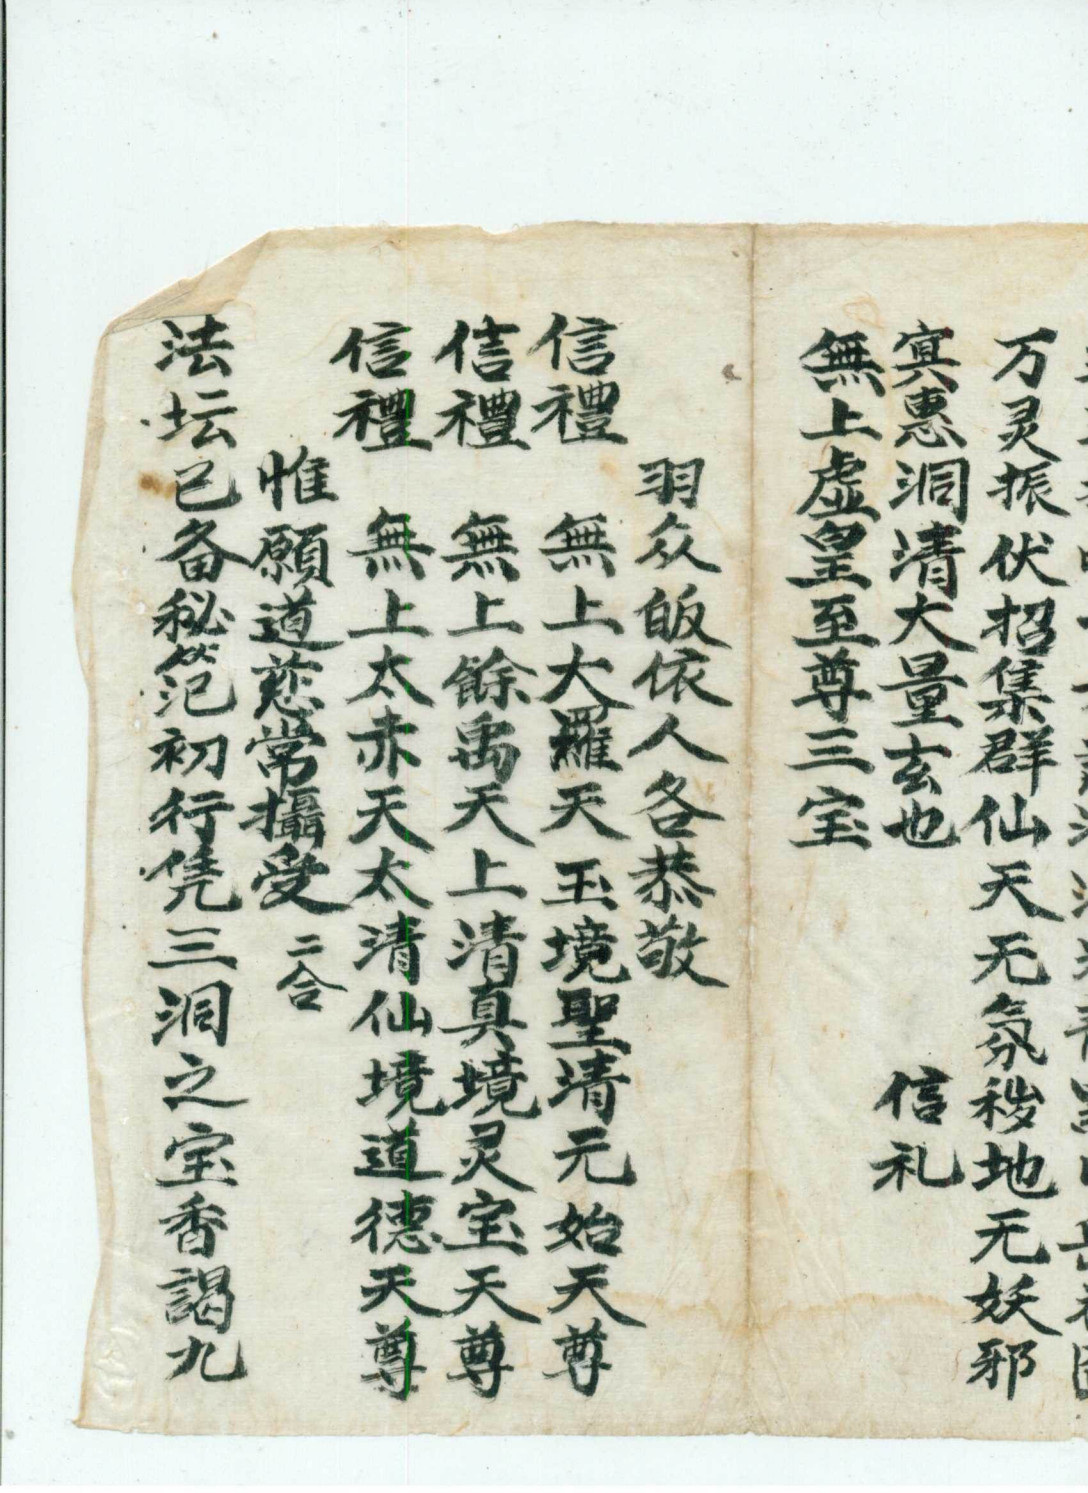 万灵振伏招集群仙天无氛秽地无妖邪
冥惠洞清大量玄也 信礼
無上虚皇至尊三宝
羽众皈依人各恭敬
信禮 無上大羅天玉境聖清元始天尊
信禮 無上餘禹天上清真境灵宝天尊
信禮 無上太赤天太清仙境道德天尊
惟願道慈常攝受 二合
法坛已备秘范初行凭三洞之宝香謁九